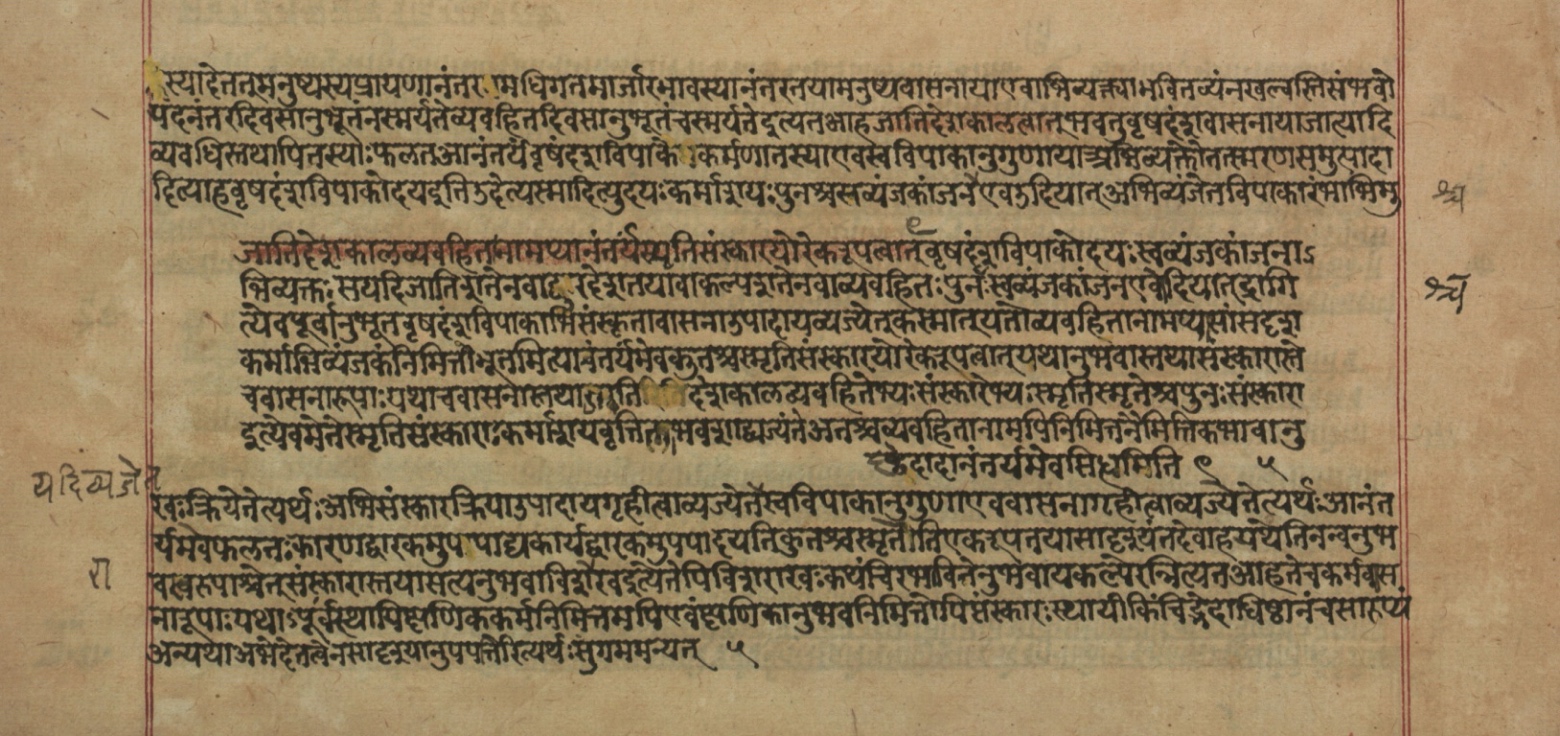 स्यादेतत्मनुष्यस्यप्रायणानंतर मधिगतमार्जारभावस्यानंतरतयामनुष्यवासनायाएवाभिव्यक्त्याभवितव्यंनखल्वस्तिसंभवो
यदनंतरदिवसानुभूतंनस्मर्यतेव्यवहितदिवसानुभूतंचस्मर्यतेइत्यतआहजातिदेशकालत्वात्भवतुवृषदंशवासनायाजात्यादि
व्यवधिस्तथापितस्याःफलतआनंतर्यंवृषदंशविपाकेनकर्मणातस्याएवस्वविपाकानुगुणायाअभिव्यक्तौतत्स्मरणसमुत्पादा
दित्याहवृषदंशविपाकोदयइतिउदेत्यस्मादित्युदयःकर्माशयःपुनश्चस्वव्यंजकांजनएवउदियात्अभिव्यंजेतविपाकारंभाभिमु
जातिदेशकालव्यवहितानामप्यानंतर्यंस्मृतिसंस्कारयोरेकरूपत्वात् ९ वृषदंशविपाकोदयःस्वव्यंजकांजना
भिव्यक्तःसयदिजातिशतेनवादूरदेशतयावाकल्पशतेनवाव्यवहितःपुनश्चस्वव्यंजकांजनएवोदियात्द्रागि
त्येवपूर्वानुभूतवृषदंशविपाकाभिसंस्कृतावासनाउपादायव्यज्येत्कस्मात्यतोव्यवहितानामप्यासांसदृश
कर्माभिव्यंजकंनिमित्तीभूतमित्यानंतर्यमेवकुतश्चस्मृतिसंस्कारयोरेकरूपत्वात्यथानुभवास्तथासंस्कारास्ते
चवासनारूपाःयथाचवासनास्तथास्मृतिरितिदेशकालव्यवहितेभ्यःसंस्कारेभ्यःस्मृतिस्मृतेश्चपुनःसंस्कारा
इत्येवमेतेस्मृतिसंस्काराःकर्माशयवृत्तिलाभवशाद्व्यज्यंतेअतश्चव्यवहितानामपिनिमित्तनैमित्तिकभावानु
च्छेदादानंतर्यमेवसिद्धमिति ९ ५
यदिव्यजेत
खःक्रियेतेत्यर्थःअभिसंस्कारक्रियाउपादायगृहीत्वाव्यज्येतस्वविपाकानुगुणाएववासनागृहीत्वाव्यज्येतेत्यर्थःआनंत
र्यमेवफलतःकारणद्वारकमुपपाद्यकार्यद्वारकमुपपादयतिकुतश्चस्मृतीतिएकरूपतयासादृश्यंतदेवाहयथेतिनन्वनुभ
वस्वरूपाश्चेत्संस्कारास्तथासत्यनुभवाविशरारवइत्येतेपिविशरारवःकथंचिरभावितेनुभवायकल्पेरन्नित्यतआहतेचकर्मवास
नारूपाःयथाऽपूर्वंस्थायिक्षणिककर्मनिमित्तमपिएवंक्षणिकानुभवनिमित्तोपिसंस्कारःस्थायीकिंचिद्भेदाधिष्ठानंचसारूप्यं
अन्यथाअभेदेतत्वेनसादृश्यानुपपत्तेरित्यर्थःसुगममन्यत् ५
श्च
श्च
रा